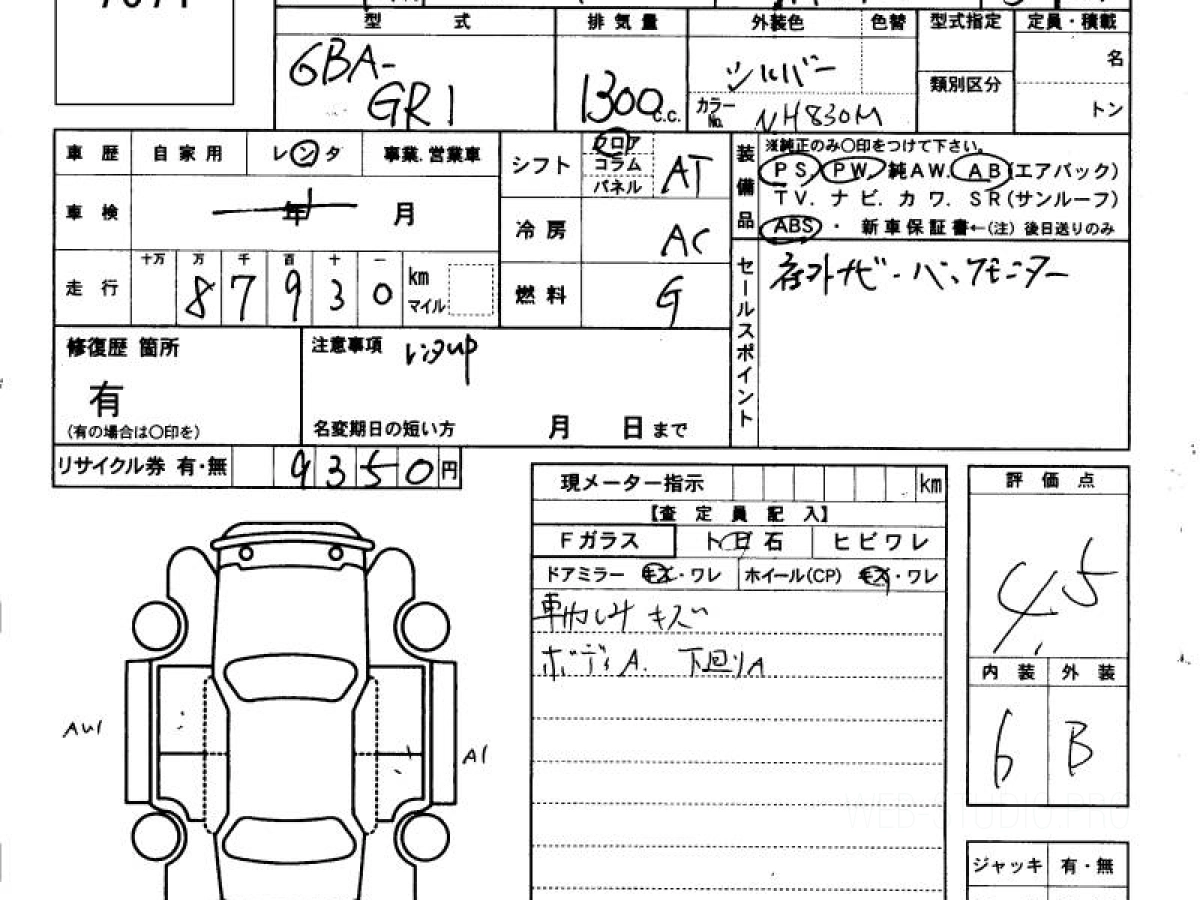 型 式 排気量 外装色 色替 型式指定 定員・積載
GBA-
GR1
1300 c.c.
シルバー
カラーNo. NH830M
類別区分
名
トン
車歴 自家用 レンタ 事業.営業車
車検 年 月
走行 十万 万 千 百 十 一
8 7 9 3 0 km
マイル
シフト フロア コラム パネル AT
冷房 AC
燃料 G
装備品
※純正のみ〇印をつけて下さい。
PS. PW. 純AW. AB(エアバック)
TV. ナビ. カワ. SR(サンルーフ)
ABS ・ 新車保証書←(注) 後日送りのみ
セールスポイント
社外ナビ・バックモニター
修復歴 箇所
有
(有の場合は〇印を)
注意事項 レンタup
名変期日の短い方 月 日まで
リサイクル券 有・無 9350円
現メーター指示 km
【査定員記入】
Fガラス ト ビ 石 ヒビワレ
ドアミラー キズ・ワレ ホイール(CP) キズ・ワレ
キズ
ボディA. 下回りA
評価点
4.5
内装 外装
6 B
AW1
A1
WEB-STUDIO.PRO
ジャッキ 有・無